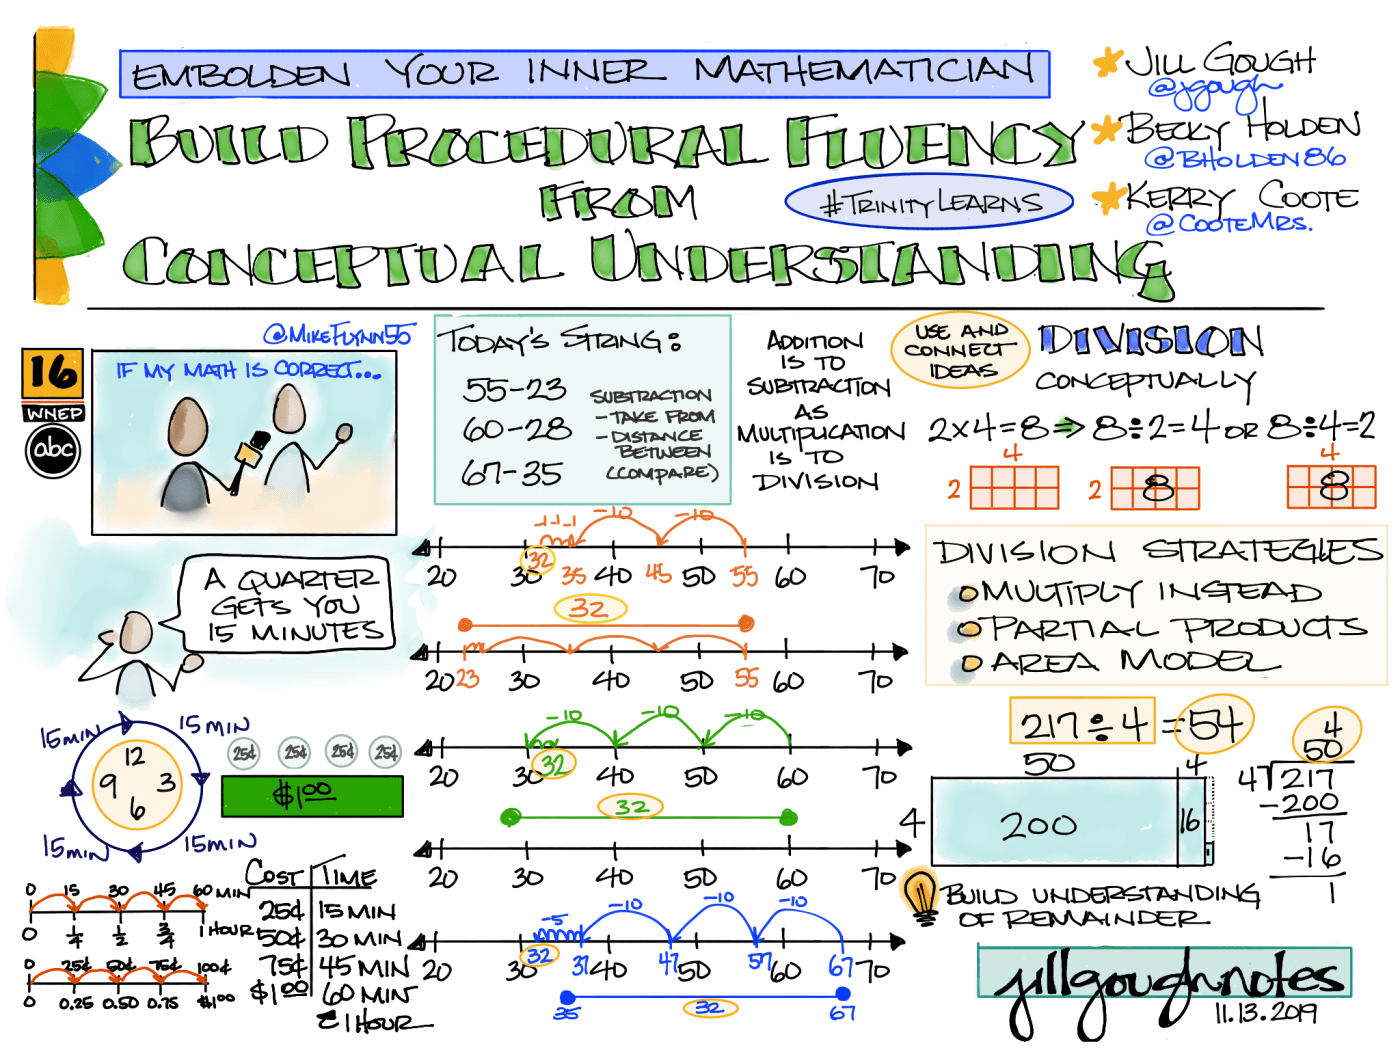 EMBOLDEN YOUR INNER MATHEMATICIAN
BUILD PROCEDURAL FLUENCY
FROM
#TRINITYLEARNS
CONCEPTUAL UNDERSTANDING
JILL GOUGH
@jgough
BECKY HOLDEN
@BHOLDEN86
KERRY COOTE
@COOTEMRS.
@MIKEFLYNN55
16
WNEP
abc
IF MY MATH IS CORRECT...
A QUARTER
GETS YOU
15 MINUTES
15 MIN 15 MIN
12
9 3
6
15 MIN 15 MIN
25¢ 25¢ 25¢ 25¢
$1.00
0 15 30 45 60 MIN
0 1/4 1/2 3/4 1 HOUR
0 25¢ 50¢ 75¢ 100¢
0 0.25 0.50 0.75 $1.00
COST TIME
25¢ 15 MIN
50¢ 30 MIN
75¢ 45 MIN
$1.00 60 MIN
1 HOUR
TODAY'S STRING:
55-23
60-28
67-35
SUBTRACTION
- TAKE FROM
- DISTANCE
BETWEEN
(COMPARE)
ADDITION
IS TO
SUBTRACTION
AS
MULTIPLICATION
IS TO
DIVISION
-1 -1 -1 -10 -10
20 30 32 35 40 45 50 55 60 70
32
20 23 30 40 50 55 60 70
-10 -10 -10
20 30 32 40 50 60 70
32
20 30 40 50 60 70
-5 -10 -10 -10
20 30 32 37 40 47 50 57 60 67 70
32
35 67
USE AND
CONNECT
IDEAS
DIVISION
CONCEPTUALLY
2×4=8 ⇒ 8÷2=4 OR 8÷4=2
4 4
2 2 8 8
DIVISION STRATEGIES
MULTIPLY INSTEAD
PARTIAL PRODUCTS
AREA MODEL
217÷4 =54
50 4
4 200 16
4
50
4 217
-200
17
-16
1
BUILD UNDERSTANDING
OF REMAINDER
jillgoughnotes
11.13.2019